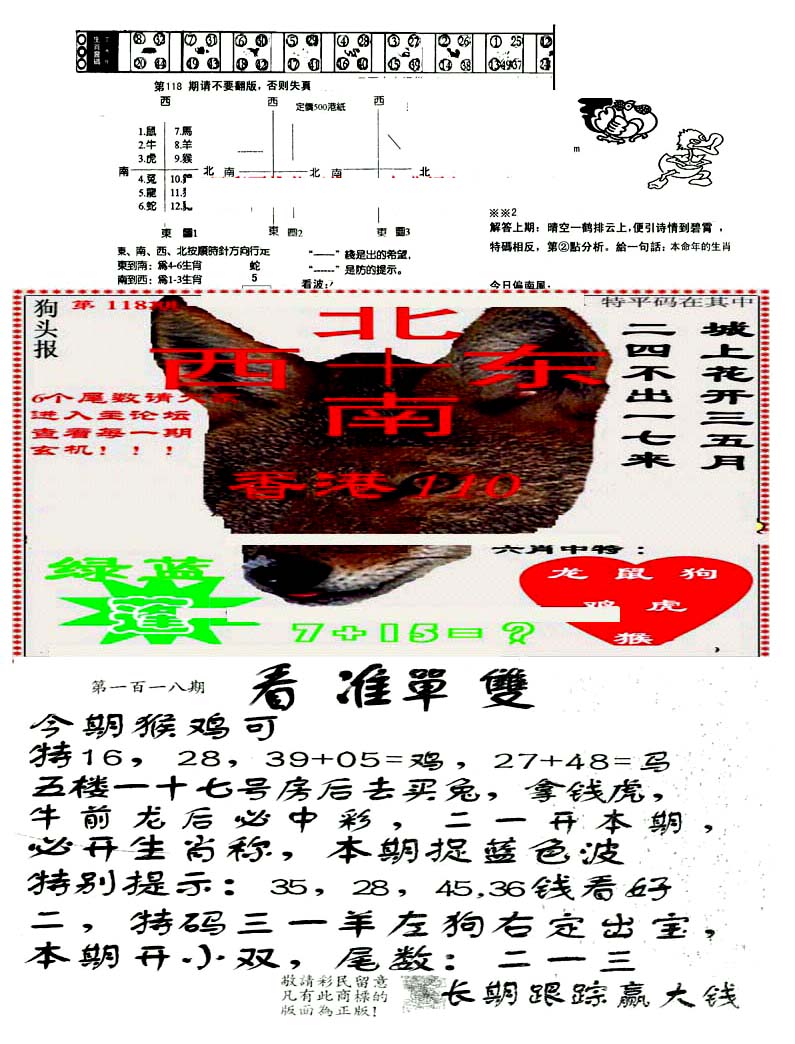 生肖靈碼
⑧ 32 ⑦ 31 ⑥ 30 ⑤ 29 ④ 28 ③ 27 ② 26 ① 25 ⑫
20 44 19 43 18 42 17 41 16 40 15 39 14 38 13 49 37
第118 期请不要翻版，否则失真
西 西 定價500港紙 西
1.鼠 7.馬
2.牛 8.羊
3.虎 9.猴
南 北 南 北 南 北
4.兔 10.
5.龍 11.
6.蛇 12.
東 圖1 東 圖2 東 圖3
※※2
解答上期：晴空一鹤排云上，便引诗情到碧霄，
特碼相反，第②點分析。給一句話：本命年的生肖
東、南、西、北按順時針方向行走
東到南：為4-6生肖 蛇
南到西：為1-3生肖 5
“——”綫是出的希望，
“-----”是防的提示。
看波:
今日偏南風，
狗头报
第 118期
特平码在其中
北
西十东
南
城上花开三五月
二四不出一七来
6个尾数请
进入主论坛
查看每一期
玄机！！！
香港110
绿蓝
六肖中特：
龙 鼠 狗
鸡 虎
猴
7+15=?
第一百一八期
看准單雙
今期猴鸡可
特16，28，39+05=鸡，27+48=马
五楼一十七号房后去买兔，拿钱虎，
牛前龙后必中彩，二一开本期，
必开生肖称，本期捉蓝色波
特别提示：35，28，45,36钱看好
二，特码三一羊左狗右定出宝，
本期开小双，尾数：二一三
敬請彩民留意
凡有此商標的
版面為正版!
长期跟踪赢大钱